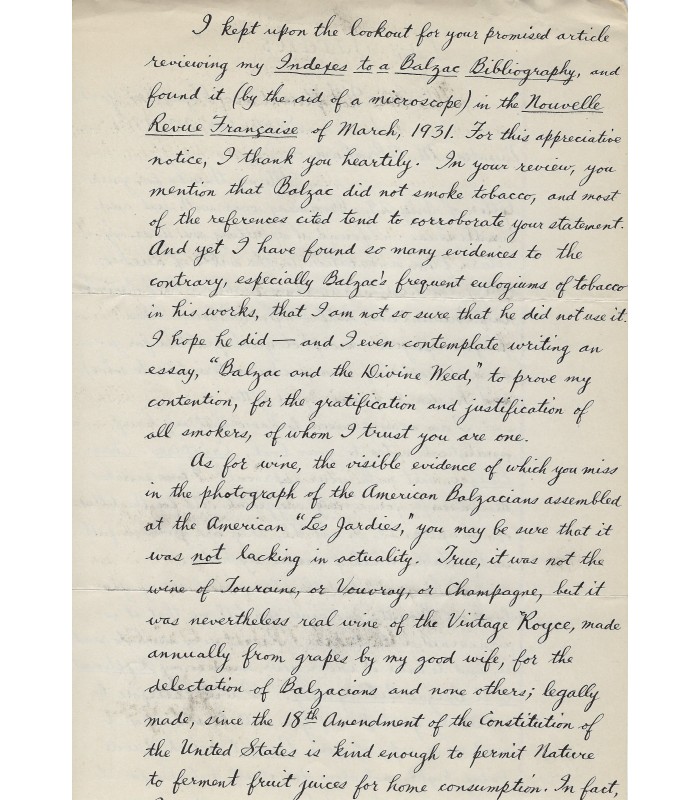 I kept upon the lookout for your promised article
reviewing my Indexes to a Balzac Bibliography, and
found it (by the aid of a microscope) in the Nouvelle
Revue Française of March, 1931. For this appreciative
notice, I thank you heartily. In your review, you
mention that Balzac did not smoke tobacco, and most
of the references cited tend to corroborate your statement.
And yet I have found so many evidences to the
contrary, especially Balzac's frequent eulogiums of tobacco
in his works, that I am not so sure that he did not use it.
I hope he did — and I even contemplate writing an
essay, "Balzac and the Divine Weed," to prove my
contention, for the gratification and justification of
all smokers, of whom I trust you are one.
As for wine, the visible evidence of which you miss
in the photograph of the American Balzacians assembled
at the American "Les Jardies," you may be sure that it
was not lacking in actuality. True, it was not the
wine of Touraine, or Vouvray, or Champagne, but it
was nevertheless real wine of the Vintage Royce, made
annually from grapes by my good wife, for the
delectation of Balzacians and none others; legally
made, since the 18th Amendment of the Constitution of
the United States is kind enough to permit Nature
to ferment fruit juices for home consumption. In fact,